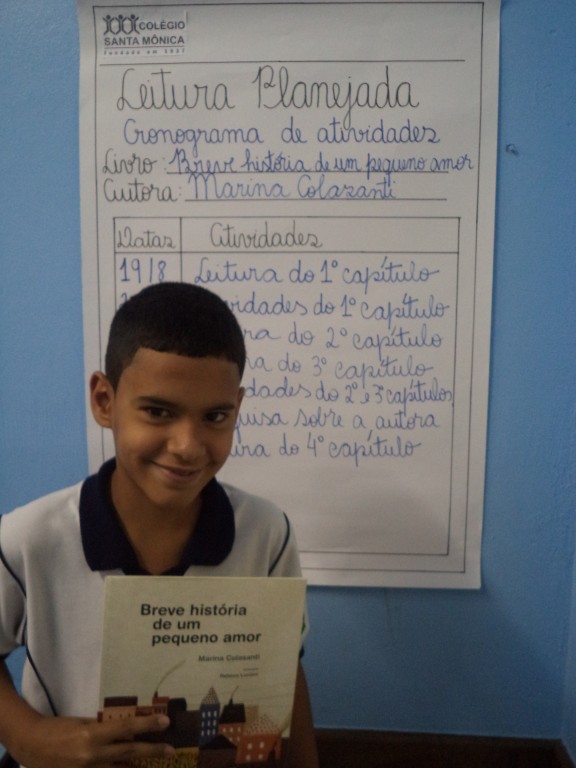 COLÉGIO
SANTA MÔNICA
fundado em 1937
Leitura Planejada
Cronograma de atividades
Livro: Breve história de um pequeno amor
Autora: Marina Colasanti
Datas Atividades
19/8 Leitura do 1º capítulo
do 1º capítulo
do 2º capítulo
do 3º capítulo
do 2º e 3º capítulos
sobre a autora
do 4º capítulo
Breve história
de um
pequeno amor
Marina Colasanti